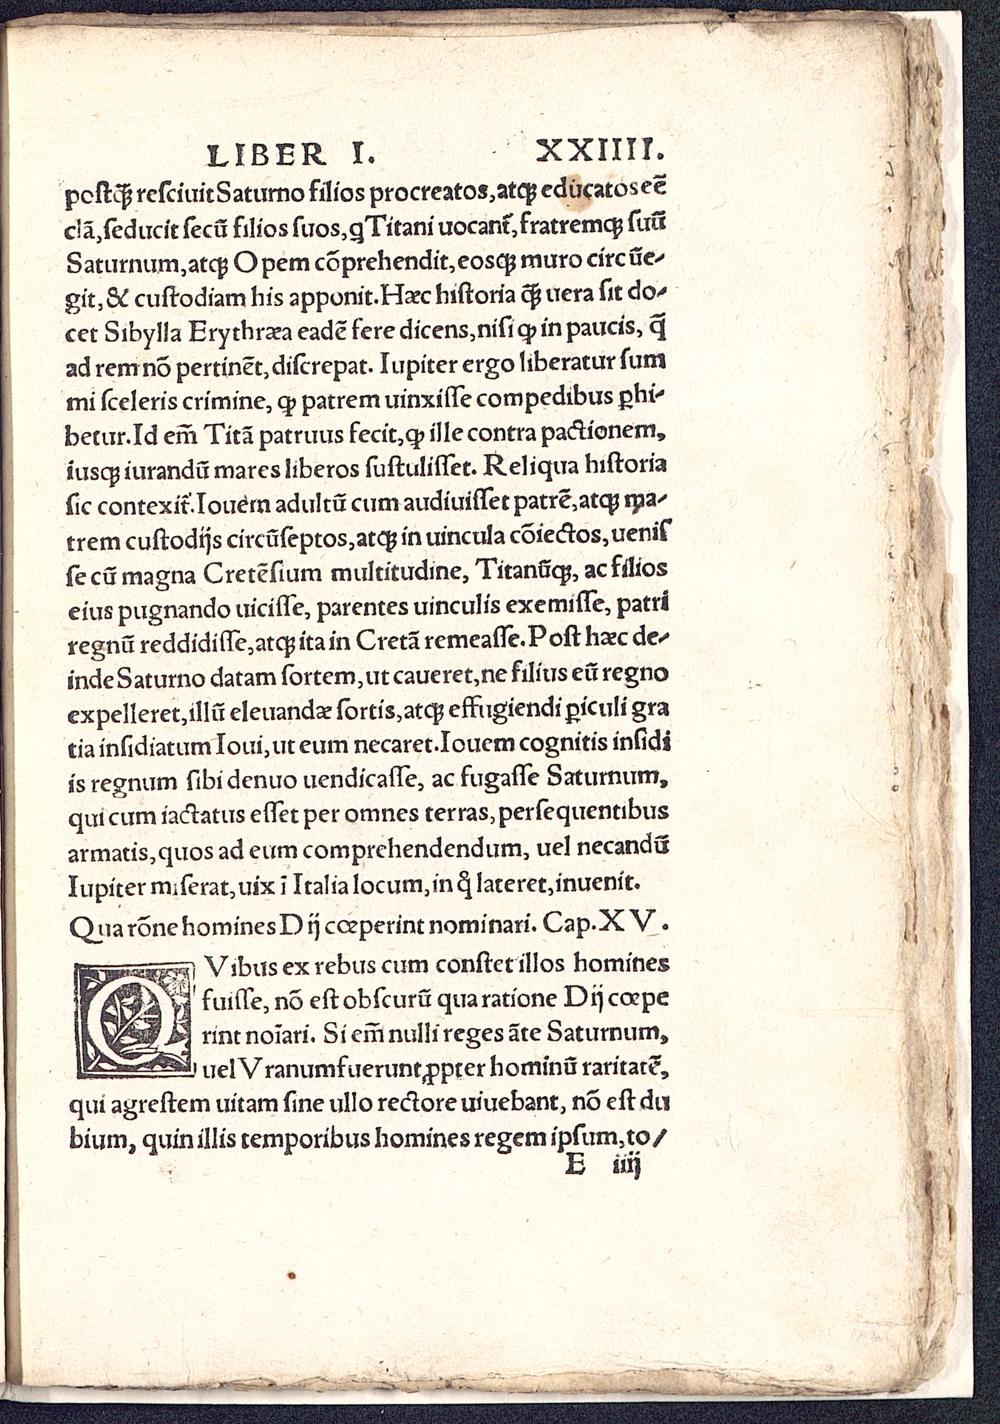 LIBER I. XXIIII.
postꝗ̃ resciuit Saturno filios procreatos, atqꝫ educatos eē
clã, seducit secũ filios suos, ꝗ Titani uocant᷑, fratremqꝫ suũ
Saturnum, atqꝫ Opem cõprehendit, eosqꝫ muro circũe-
git, & custodiam his apponit. Hæc historia ꝗ̃ uera sit do-
cet Sibylla Erythræa eadẽ fere dicens, nisi ꝙ in paucis, q̃
ad rem nõ pertinẽt, discrepat. Iupiter ergo liberatur sum
mi sceleris crimine, ꝙ patrem uinxisse compedibus ꝑhi-
betur. Id em̃ Titã patruus fecit, ꝙ ille contra pactionem,
iusqꝫ iurandũ mares liberos sustulisset. Reliqua historia
sic contexit᷑. Iouem adultũ cum audiuisset patrẽ, atqꝫ ma-
trem custodijs circũseptos, atqꝫ in uincula cõiectos, uenis
se cũ magna Cretẽsium multitudine, Titanũqꝫ, ac filios
eius pugnando uicisse, parentes uinculis exemisse, patri
regnũ reddidisse, atqꝫ ita in Cretã remeasse. Post hæc de-
inde Saturno datam sortem, ut caueret, ne filius eũ regno
expelleret, illũ eleuandæ sortis, atqꝫ effugiendi ꝑiculi gra
tia insidiatum Ioui, ut eum necaret. Iouem cognitis insidi
is regnum sibi denuo uendicasse, ac fugasse Saturnum,
qui cum iactatus esset per omnes terras, persequentibus
armatis, quos ad eum comprehendendum, uel necandũ
Iupiter miserat, uix ĩ Italia locum, in qͦ lateret, inuenit.
Qua rõne homines Dij cœperint nominari. Cap. XV.
QVibus ex rebus cum constet illos homines
fuisse, nõ est obscurũ qua ratione Dij cœpe
rint noĩari. Si em̃ nulli reges ãte Saturnum,
uel Vranum fuerunt ꝓpter hominũ raritatẽ,
qui agrestem uitam sine ullo rectore uiuebant, nõ est du
bium, quin illis temporibus homines regem ipsum, to/
E iiij